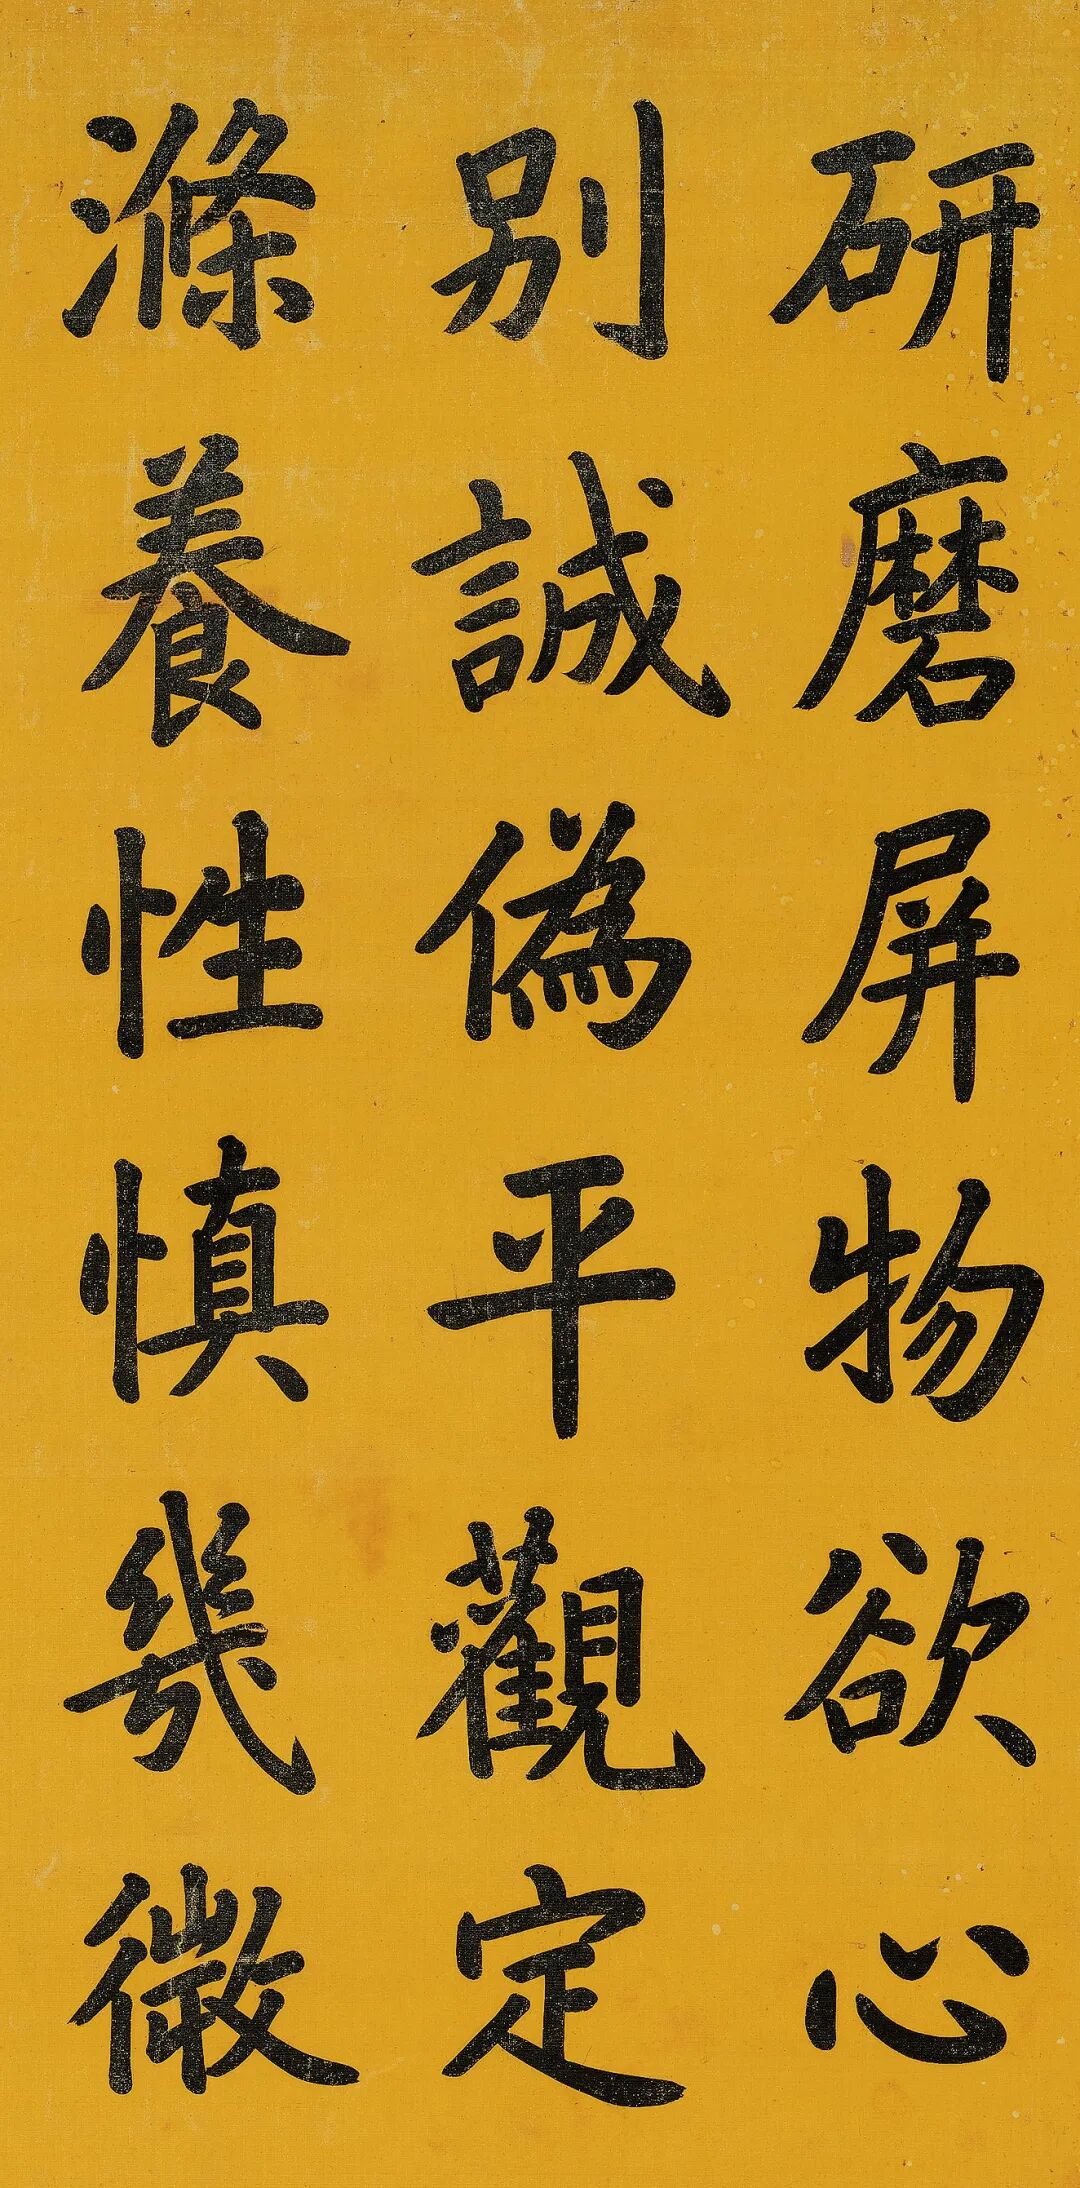 研磨屏物欲心
别誠偽平觀定
滌養性慎幾微